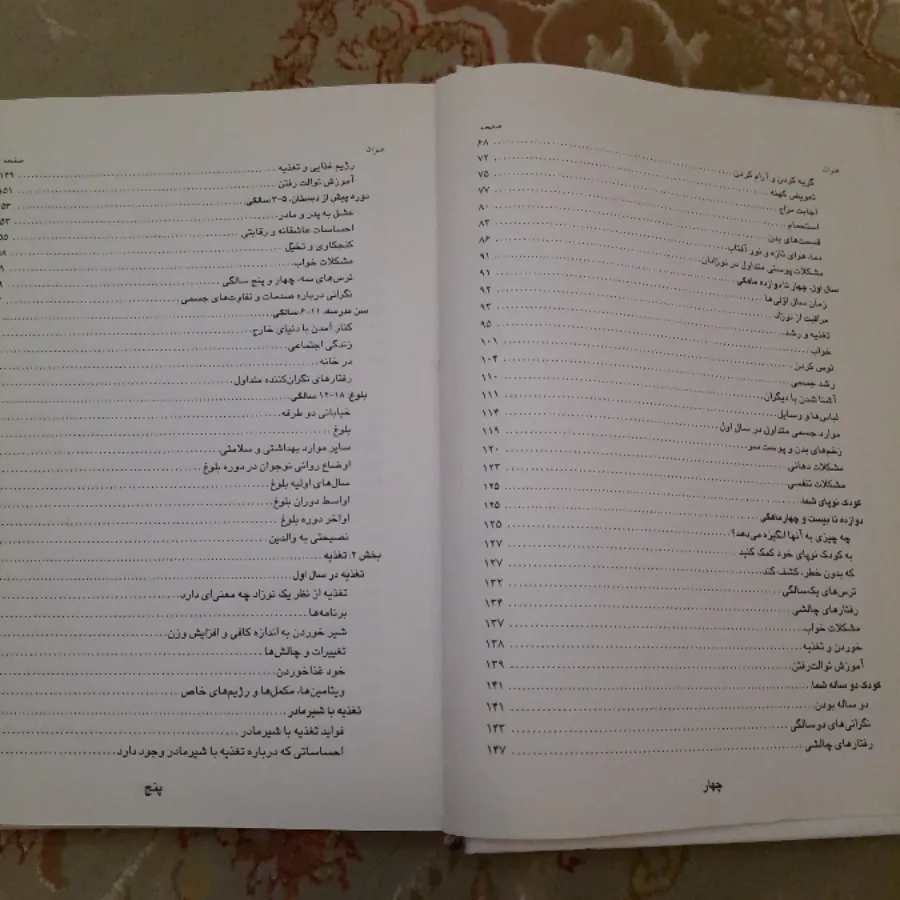 عنوان صفحه
گریه کردن و آرام کردن ۶۸
تعویض کهنه ۷۲
اجابت مزاج ۷۵
استحمام ۷۷
قسمت‌های بدن ۸۰
دما، هوای تازه و نور آفتاب ۸۳
مشکلات پوستی متداول در نوزادان ۸۶
سال اول، چهار تا دوازده ماهگی ۹۱
زمان سال اولی‌ها ۹۱
مراقبت از نوزاد ۹۲
تغذیه و رشد ۹۳
خواب ۹۵
لوس کردن ۱۰۱
رشد جسمی ۱۰۴
آشنا شدن با دیگران ۱۱۰
لباس‌ها و وسایل ۱۱۱
موارد جسمی متداول در سال اول ۱۱۴
زخم‌های بدن و پوست سر ۱۱۹
مشکلات دهانی ۱۲۰
مشکلات تنفسی ۱۲۳
کودک نوپای شما ۱۲۵
دوازده تا بیست و چهارماهگی ۱۲۵
چه چیزی به آنها انگیزه می‌دهد؟ ۱۲۵
به کودک نوپای خود کمک کنید ۱۲۷
که بدون خطر، کشف کند ۱۲۷
ترس‌های یک‌سالگی ۱۳۲
رفتارهای چالشی ۱۳۴
مشکلات خواب ۱۳۷
خوردن و تغذیه ۱۳۸
آموزش توالت‌رفتن ۱۳۹
کودک دو ساله شما ۱۴۱
دو ساله بودن ۱۴۱
نگرانی‌های دوسالگی ۱۴۳
رفتارهای چالشی ۱۴۷
چهار
عنوان صفحه
رژیم غذایی و تغذیه ۱۴۹
آموزش توالت رفتن ۱۵۱
دوره پیش از دبستان، ۵-۳ سالگی
عشق به پدر و مادر
احساسات عاشقانه و رقابتی
کنجکاوی و تخیّل
مشکلات خواب
ترس‌های سه، چهار و پنج سالگی
نگرانی درباره صدمات و تفاوت‌های جسمی
سن مدرسه، ۱۱-۶ سالگی
کنار آمدن با دنیای خارج
زندگی اجتماعی
در خانه
رفتارهای نگران‌کننده متداول
بلوغ: ۱۸-۱۲ سالگی
خیابانی دو طرفه
بلوغ
سایر موارد بهداشتی و سلامتی
اوضاع روانی نوجوان در دوره بلوغ
سال‌های اولیه بلوغ
اواسط دوران بلوغ
اواخر دوره بلوغ
نصیحتی به والدین
بخش ۲: تغذیه
تغذیه در سال اول
تغذیه از نظر یک نوزاد چه معنی‌ای دارد
برنامه‌ها
شیر خوردن به اندازه کافی و افزایش وزن
تغییرات و چالش‌ها
خود غذاخوردن
ویتامین‌ها، مکمل‌ها و رژیم‌های خاص
تغذیه با شیرمادر
فواید تغذیه با شیرمادر
احساساتی که درباره تغذیه با شیرمادر وجود دارد
پنج